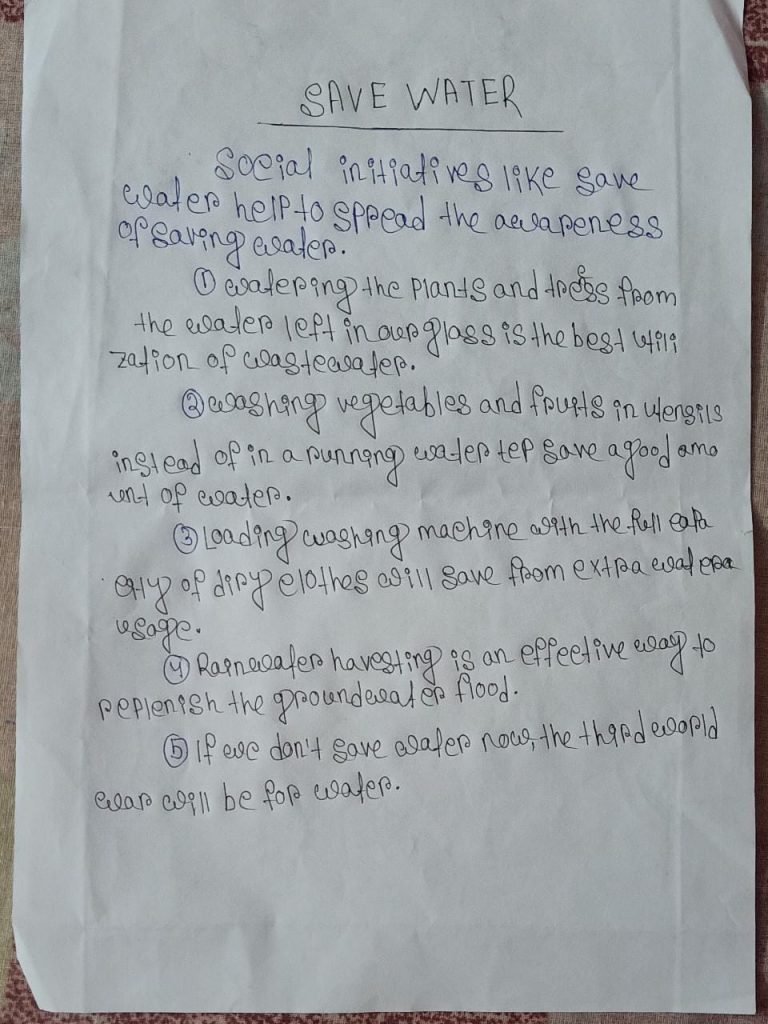 SAVE WATER
Social initiatives like save
water help to spread the awareness
of saving water.
① watering the plants and tress from
the water left in our glass is the best utili
zation of wastewater.
② washing vegetables and fruits in utensils
instead of in a running water tep save a good amo
unt of water.
③ Loading washing machine with the full capa
city of diry clothes will save from extra
usage.
④ Rainwater havesting is an effective way to
replenish the groundwater flood.
⑤ If we don't save water now, the third world
war will be for water.